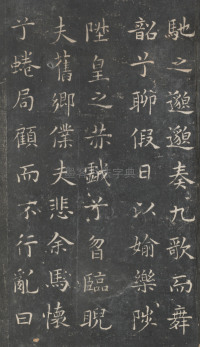 馳之邈邈奏九歌而舞
韶兮聊假日以婾樂陟
陞皇之赫戲兮曶臨睨
夫舊鄉僕夫悲余馬懷
兮蜷局顧而不行亂曰